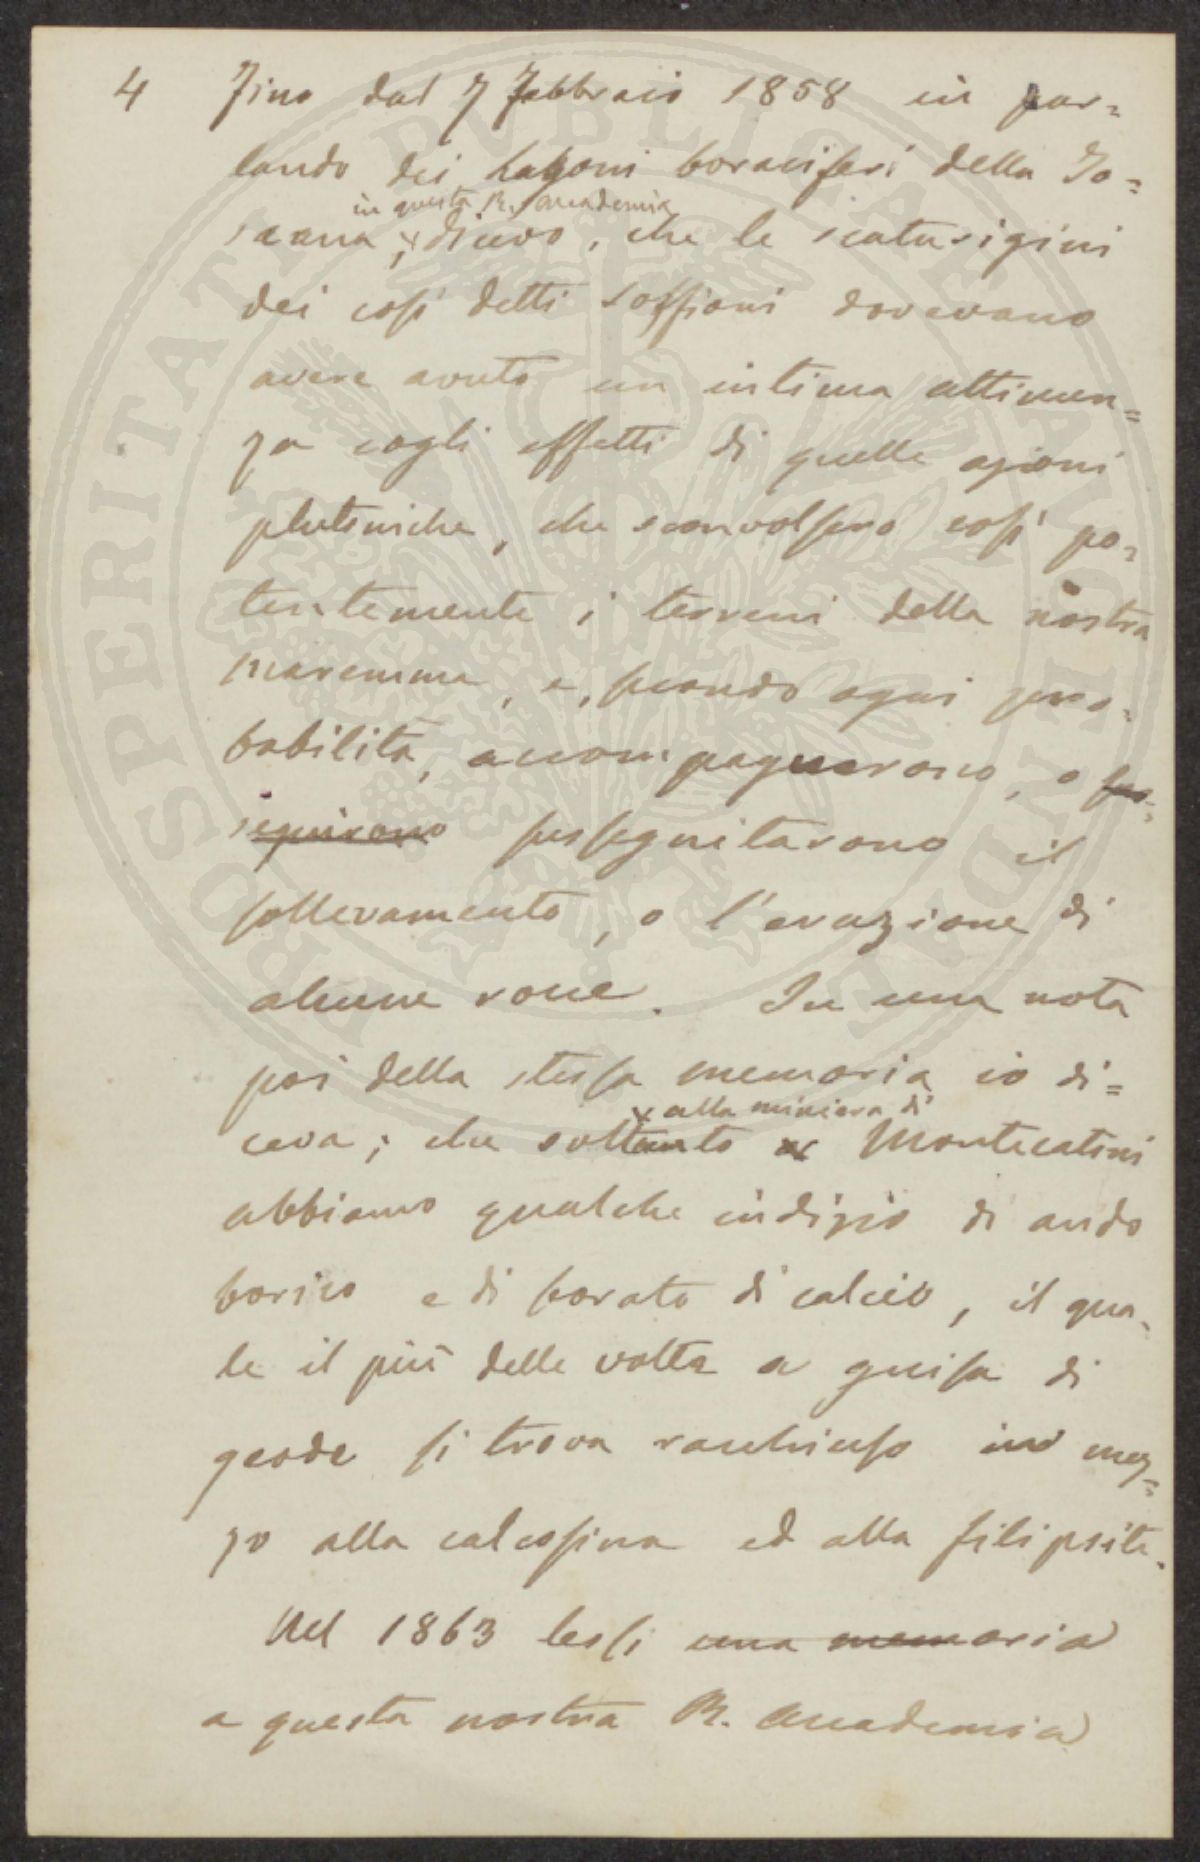 4 Fino dal 7 Febbraio 1858 in par=
lando dei Lagoni boraciferi della To=
in questa R. Accademia
scana, diceva, che le scaturigini
dei così detti Soffioni dovevano
avere avuto un intima attinen=
za cogli effetti di quelle azioni
plutoniche, che sconvolsero così po=
tentemente i terreni della nostra
maremma, e, secondo ogni pro=
babilità, accompagnarono, o sus=
seguirono susseguitarono il
sollevamento, o l'eruzione di
alcune rocce. In una nota
poi della stessa memoria io di=
alla miniera di
ceva; che soltanto a Montecatini
abbiamo qualche indizio di acido
borico e di borato di calcio, il qua=
le il più delle volte a guisa di
geode si trova racchiuso in mez=
zo alla calcosina ed alla filipsite.
Nel 1863 lessi una memoria
a questa nostra R. Accademia
PROSPERITATI PUBLICAE AUGENDAE